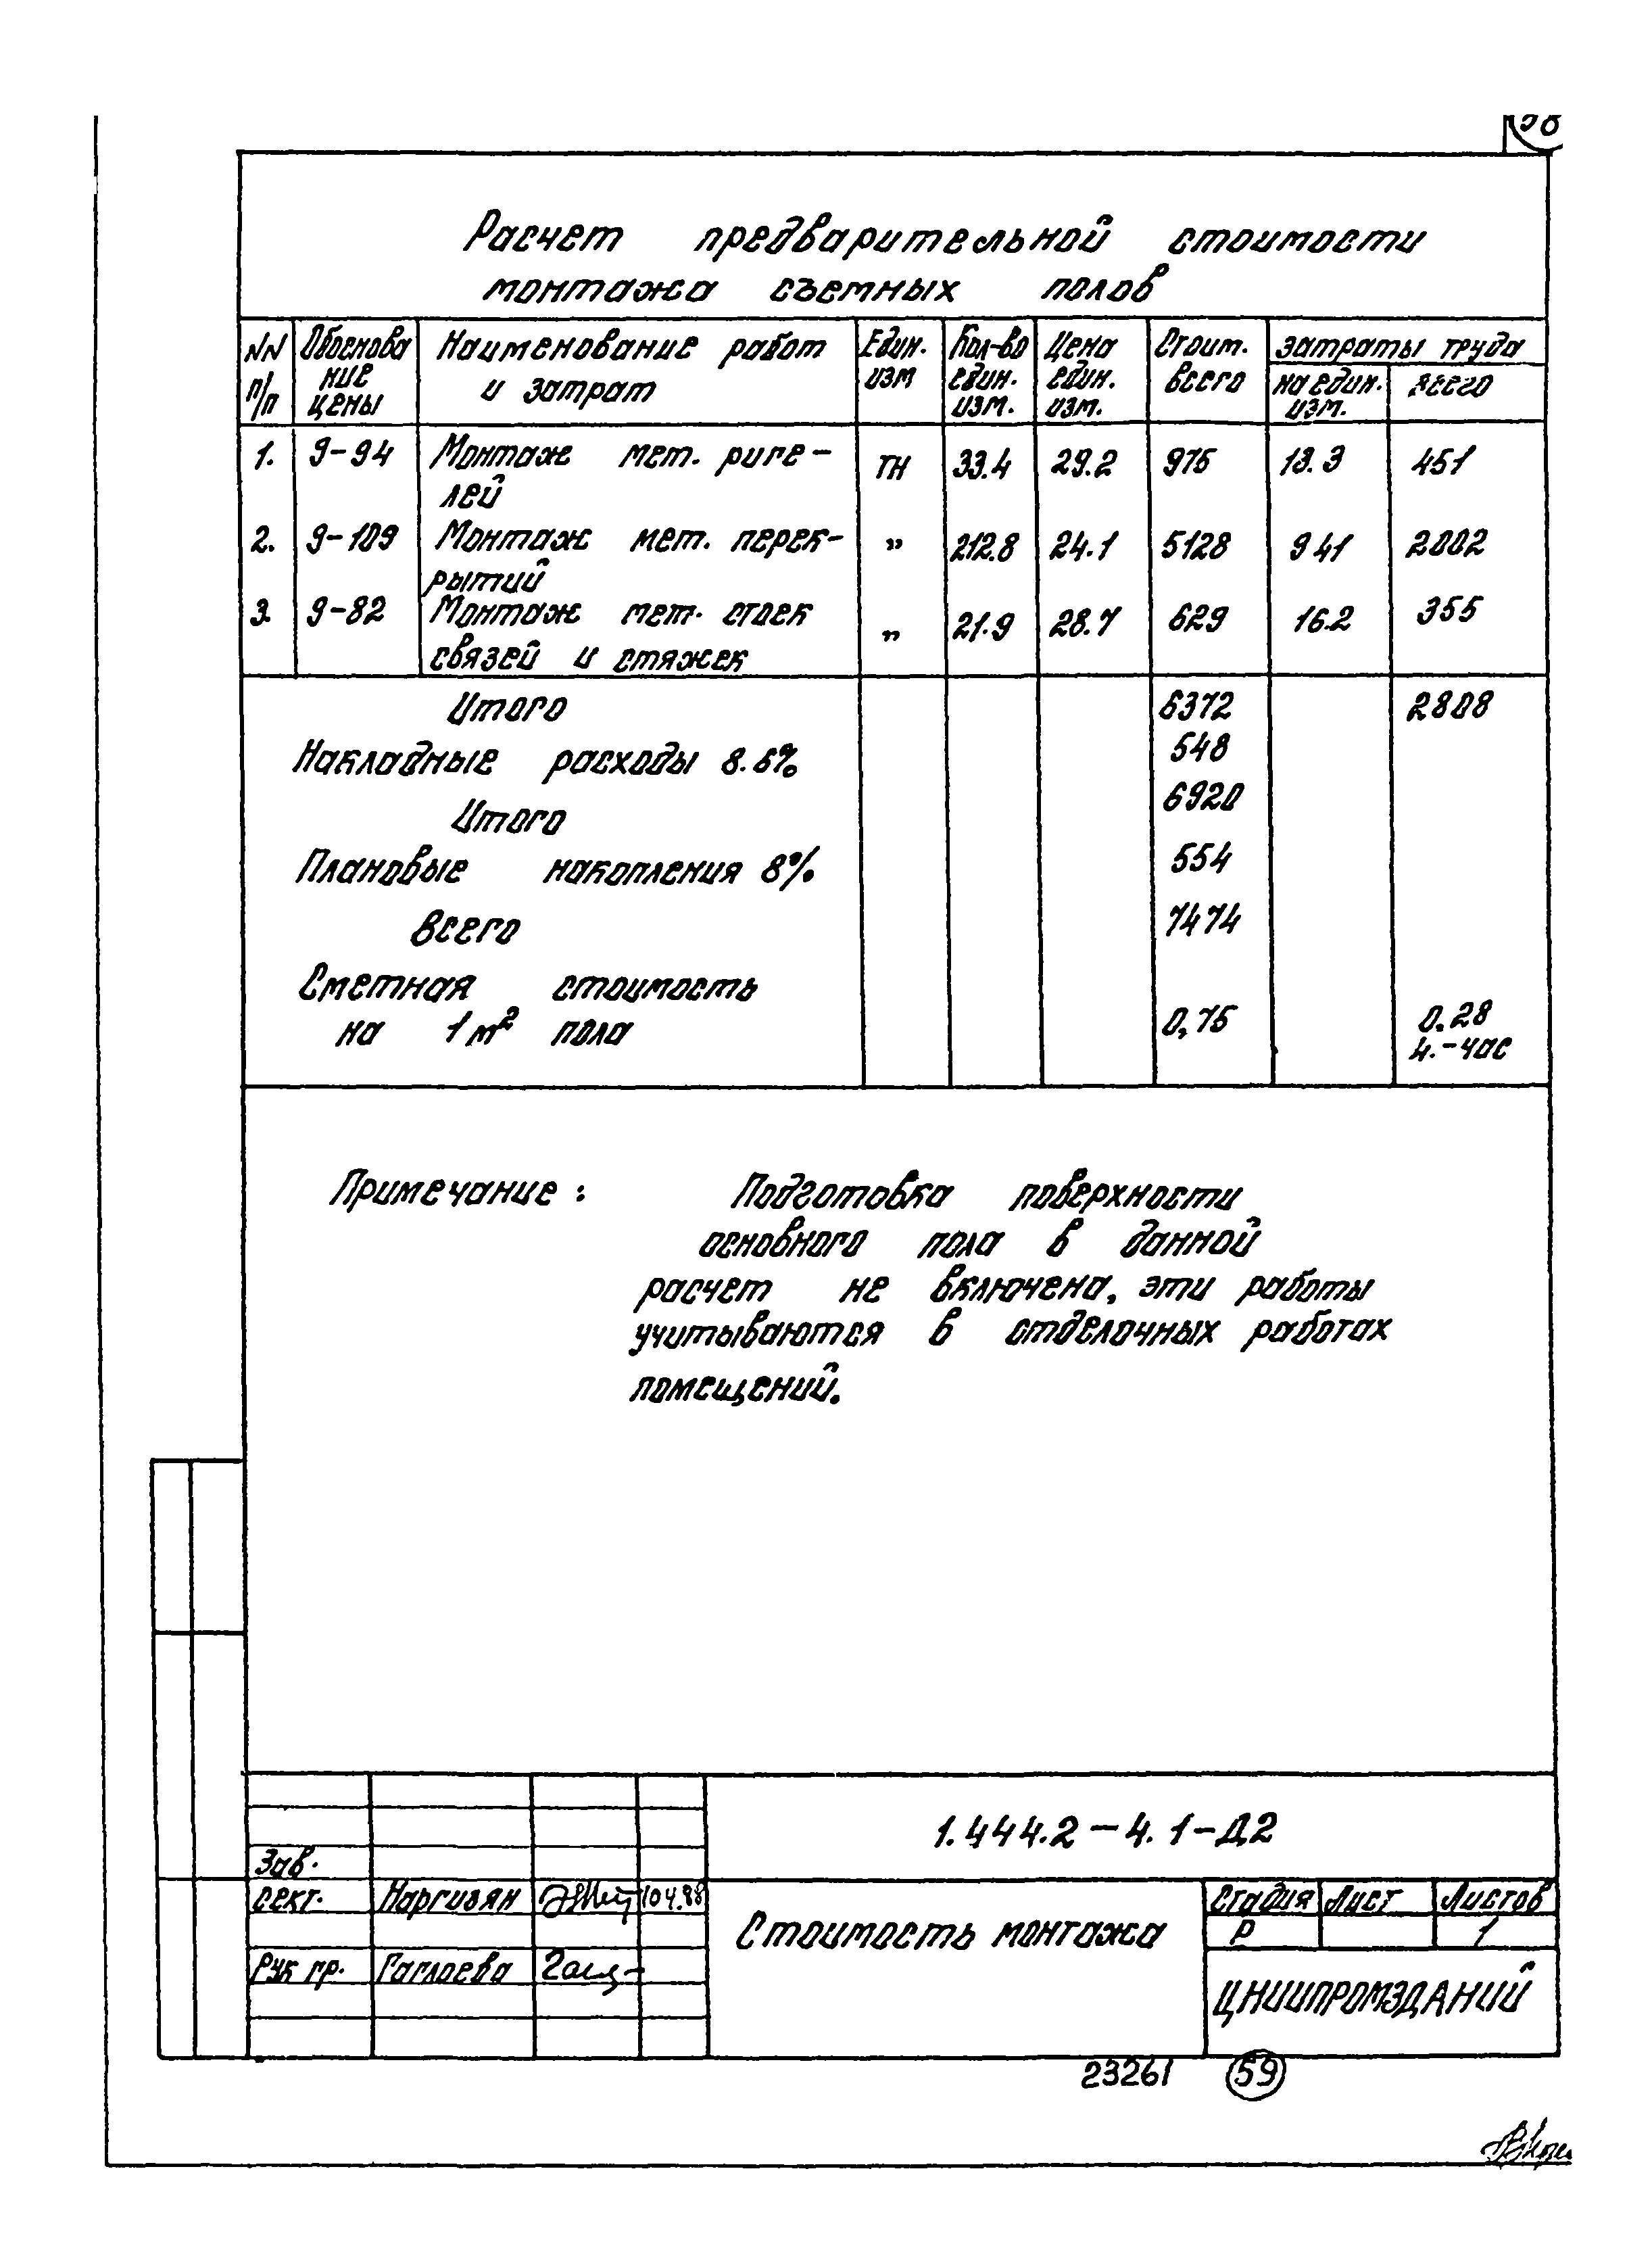 Расчет предварительной стоимости
монтажа съемных полов
NN п/п Обоснова ние цены Наименование работ и затрат Един. изм Кол-во един. изм. Цена един. изм. Стоим. всего затраты труда на един. изм. всего
1. 9-94 Монтаж мет. риге- тн 33.4 29.2 975 13.3 451
лей
2. 9-109 Монтаж мет. перек- " 212.8 24.1 5128 9 41 2002
рытий
3. 9-82 Монтаж мет. стоек " 21.9 28.7 629 16.2 355
связей и стяжек
Итого 6372 2808
Накладные расходы 8.6% 548
Итого 6920
Плановые накопления 8% 554
Всего 7474
Сметная стоимость
на 1 м² пола 0,75 0.28
ч.-час
Примечание: Подготовка поверхности
основного пола в данной
расчет не включена, эти работы
учитываются в отделочных работах
помещений.
1.444.2-4.1-Д2
Зав.
сект. Наргизян 104.88
Рук гр. Гаглоева
Стоимость монтажа
Стадия Лист Листов
Р 1
ЦНИИПРОМЗДАНИЙ
23261 59